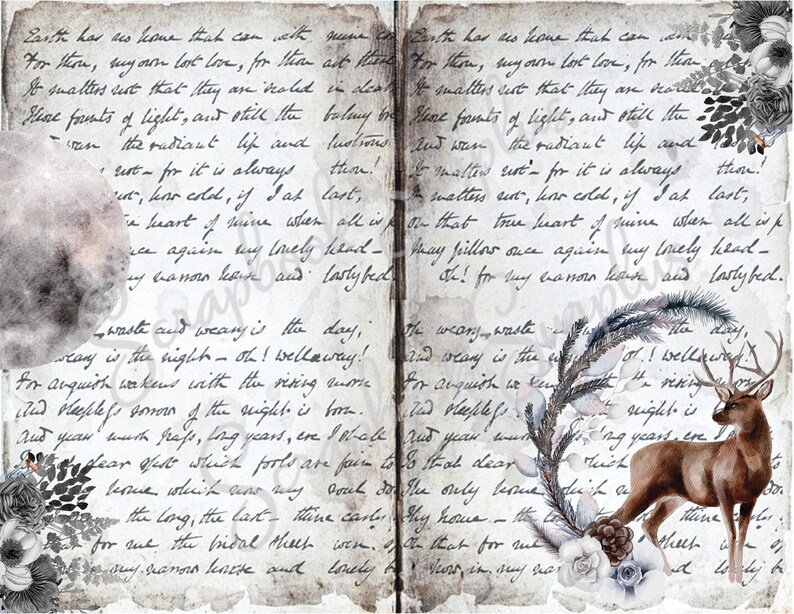 Earth has no home that can with mine co
For thou, my own lost love, for thou art there
It matters not that they are sealed in death
Those founts of light, and still the balmy bre
And wan the radiant lip and lustrous
not - for it is always thou!
not, how cold, if I at last,
heart of mine when all is p
once again my lonely head -
my narrow house and lowly bed.
waste and weary is the day,
weary is the night - oh! wellaway!
For anguish wakens with the rising morn
And sleepless sorrow of the night is born.
And years must pass, long years, ere I shall
dear spot which fools are fain to
home which now my soul do
the long, the last - thine earlie
for me the bridal sheet
my narrow house and lowly b
Earth has no home that can with mine
For thou, my own lost love, for thou
It matters not that they are sealed
Those founts of light, and still the
And wan the radiant lip and
It matters not - for it is always thou!
It matters not, how cold, if I at last,
on that true heart of mine when all is p
May pillow once again my lonely head -
oh! for my narrow house and lowly bed.
Oh weary, waste the day,
and weary is the oh! wellaway!
For anguish the rising morn
And sleepless sorrow night is
And years must long years, ere I
To that dear which
The only home
Thy home - the
Oh that for me
now, in my
Scrapbook
Scraplus